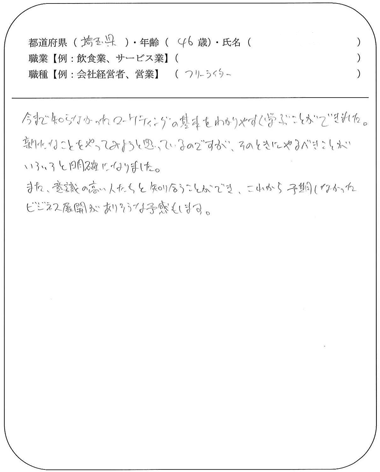 都道府県（ 埼玉県 ）・年齢（ 46 歳）・氏名（ ）
職業【例：飲食業、サービス業】（ ）
職種【例：会社経営者、営業】（ フリーらいらー ）
今まで知らなかったマーケティングの基本をわかりやすく学ぶことができました。
新たなことをやってみようと思っているのですが、そのときにやるべきことが
いろいろと明確になりました。
また、意識の高い人たちと知り合うことができ、これから予期しなかった
ビジネス展開がありそうな予感もします。